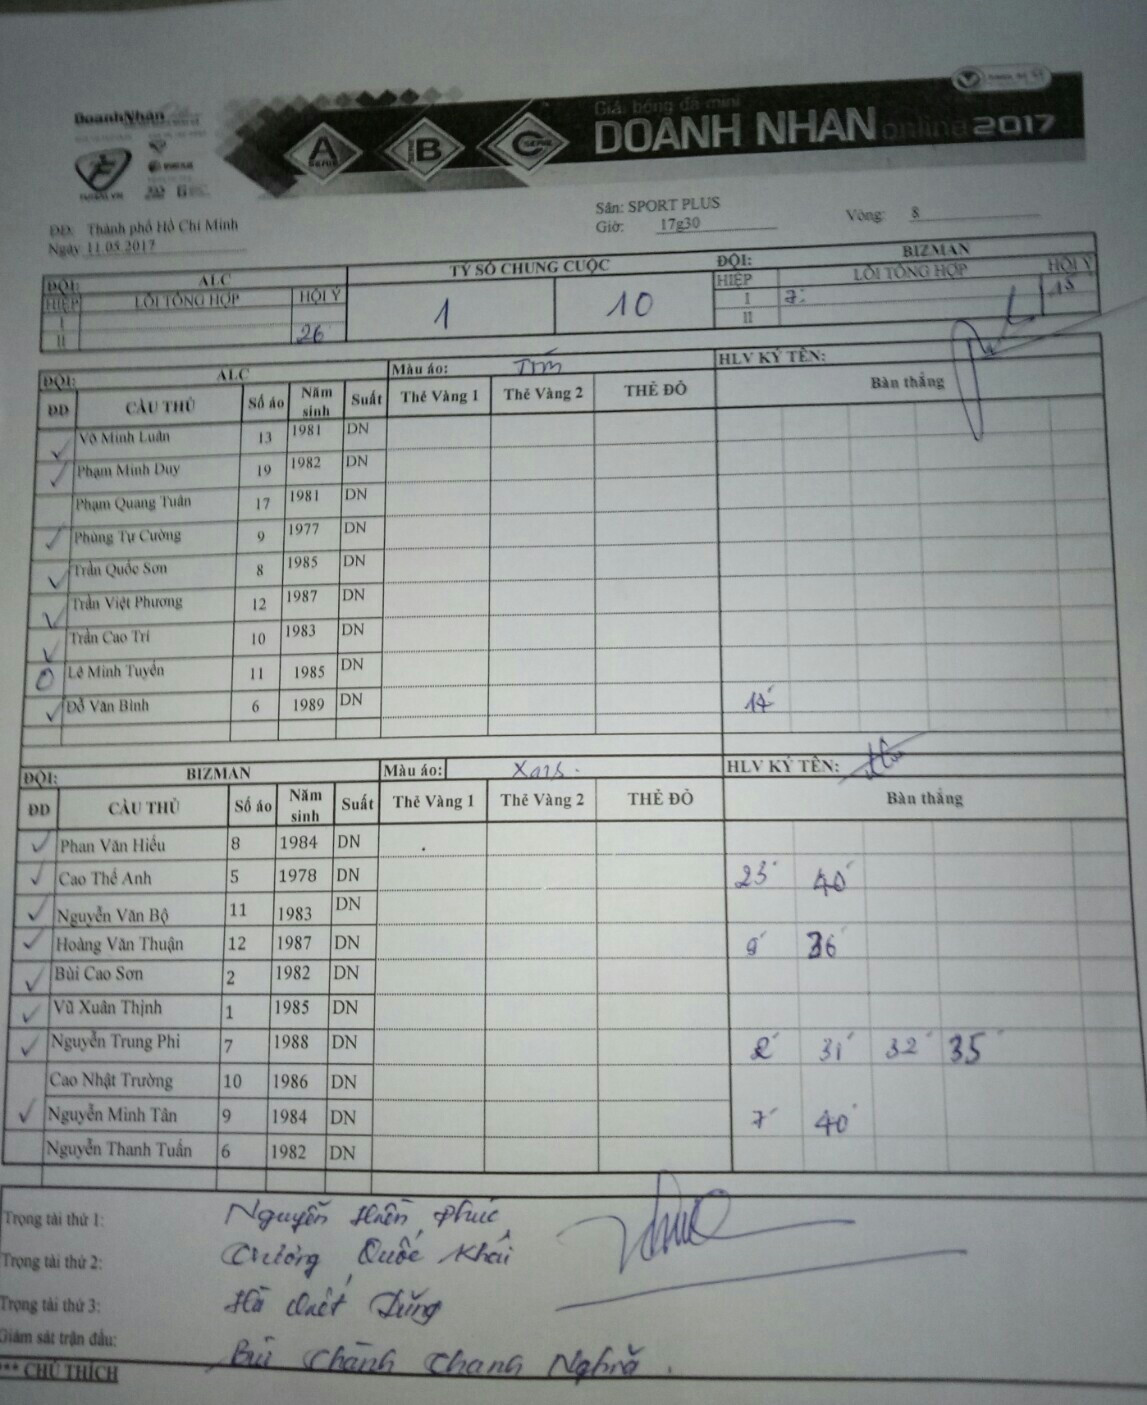 DoanhNhân
A SERIE
B
C SERIE
Giải bóng đá mini
DOANH NHAN online 2017
ĐĐ: Thành phố Hồ Chí Minh
Ngày 11.05.2017
Sân: SPORT PLUS
Giờ: 17g30
Vòng: 8
ĐỘI: ALC TỶ SỐ CHUNG CUỘC ĐỘI: BIZMAN
HIỆP LỖI TỔNG HỢP HỘI Ý 1 10 HIỆP LỖI TỔNG HỢP HỘI Ý
I I 7' 15
II 26 II
ĐỘI: ALC Màu áo: Tím HLV KÝ TÊN:
ĐD CẦU THỦ Số áo Năm sinh Suất Thẻ Vàng 1 Thẻ Vàng 2 THẺ ĐỎ Bàn thắng
Võ Minh Luân 13 1981 DN
Phạm Minh Duy 19 1982 DN
Phạm Quang Tuân 17 1981 DN
Phùng Tự Cường 9 1977 DN
Trần Quốc Sơn 8 1985 DN
Trần Việt Phương 12 1987 DN
Trần Cao Trí 10 1983 DN
Lê Minh Tuyển 11 1985 DN
Đỗ Văn Bình 6 1989 DN 17'
ĐỘI: BIZMAN Màu áo: HLV KÝ TÊN:
ĐD CẦU THỦ Số áo Năm sinh Suất Thẻ Vàng 1 Thẻ Vàng 2 THẺ ĐỎ Bàn thắng
Phan Văn Hiếu 8 1984 DN
Cao Thế Anh 5 1978 DN 23' 40'
Nguyễn Văn Bộ 11 1983 DN
Hoàng Văn Thuận 12 1987 DN 9' 36'
Bùi Cao Sơn 2 1982 DN
Vũ Xuân Thịnh 1 1985 DN
Nguyễn Trung Phi 7 1988 DN 2' 31' 32' 35'
Cao Nhật Trường 10 1986 DN
Nguyễn Minh Tân 9 1984 DN 7' 40'
Nguyễn Thanh Tuấn 6 1982 DN
Trọng tài thứ 1: Nguyễn Hiền Phúc
Trọng tài thứ 2: Trương Quốc Khải
Trọng tài thứ 3: Hà Quốc Dũng
Giám sát trận đấu: Bùi Chánh Nghĩa
*** CHÚ THÍCH